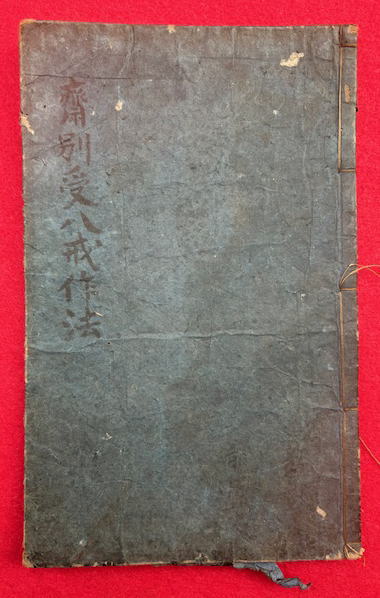 齋別受八戒作法